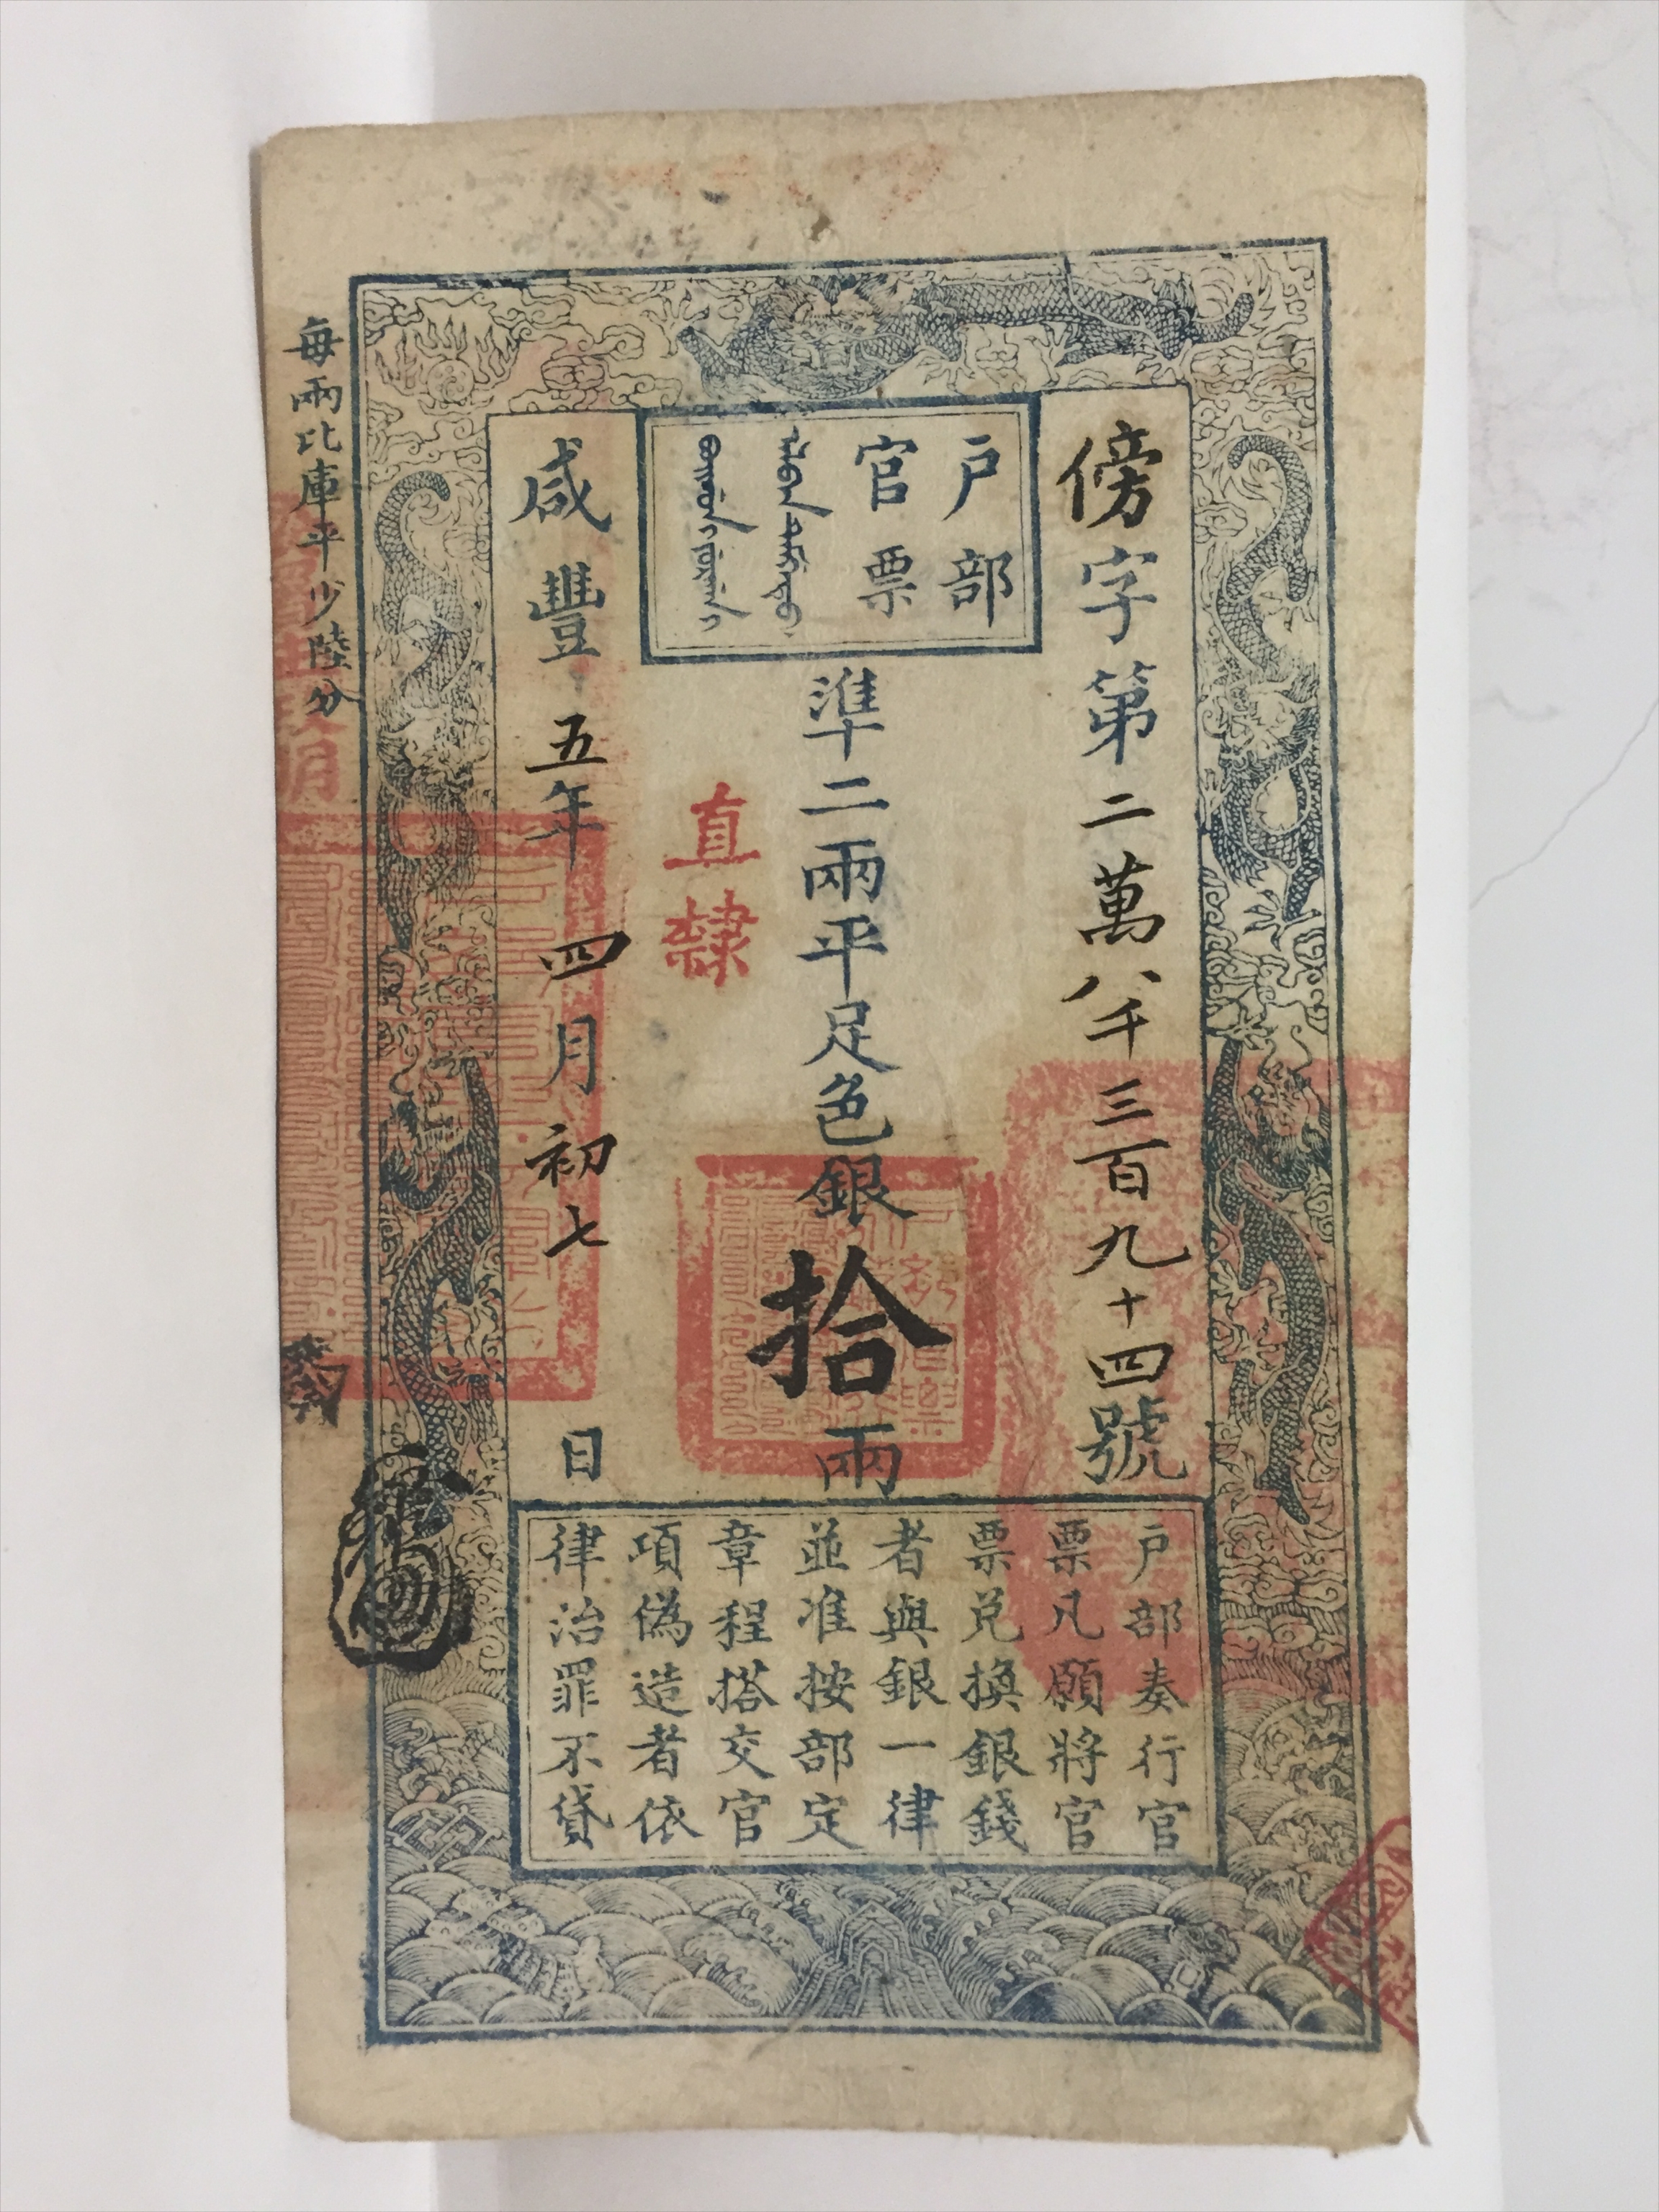 傍字第二萬八千三百九十四號
戶部
官票
準二兩平足色銀拾兩
直隸
咸豐五年四月初七日
每兩比庫平少陸分
戶部奏行官
票凡願將官
票兑換銀錢
者與銀一律
並准按部定
章程搭交官
項偽造者依
律治罪不貸